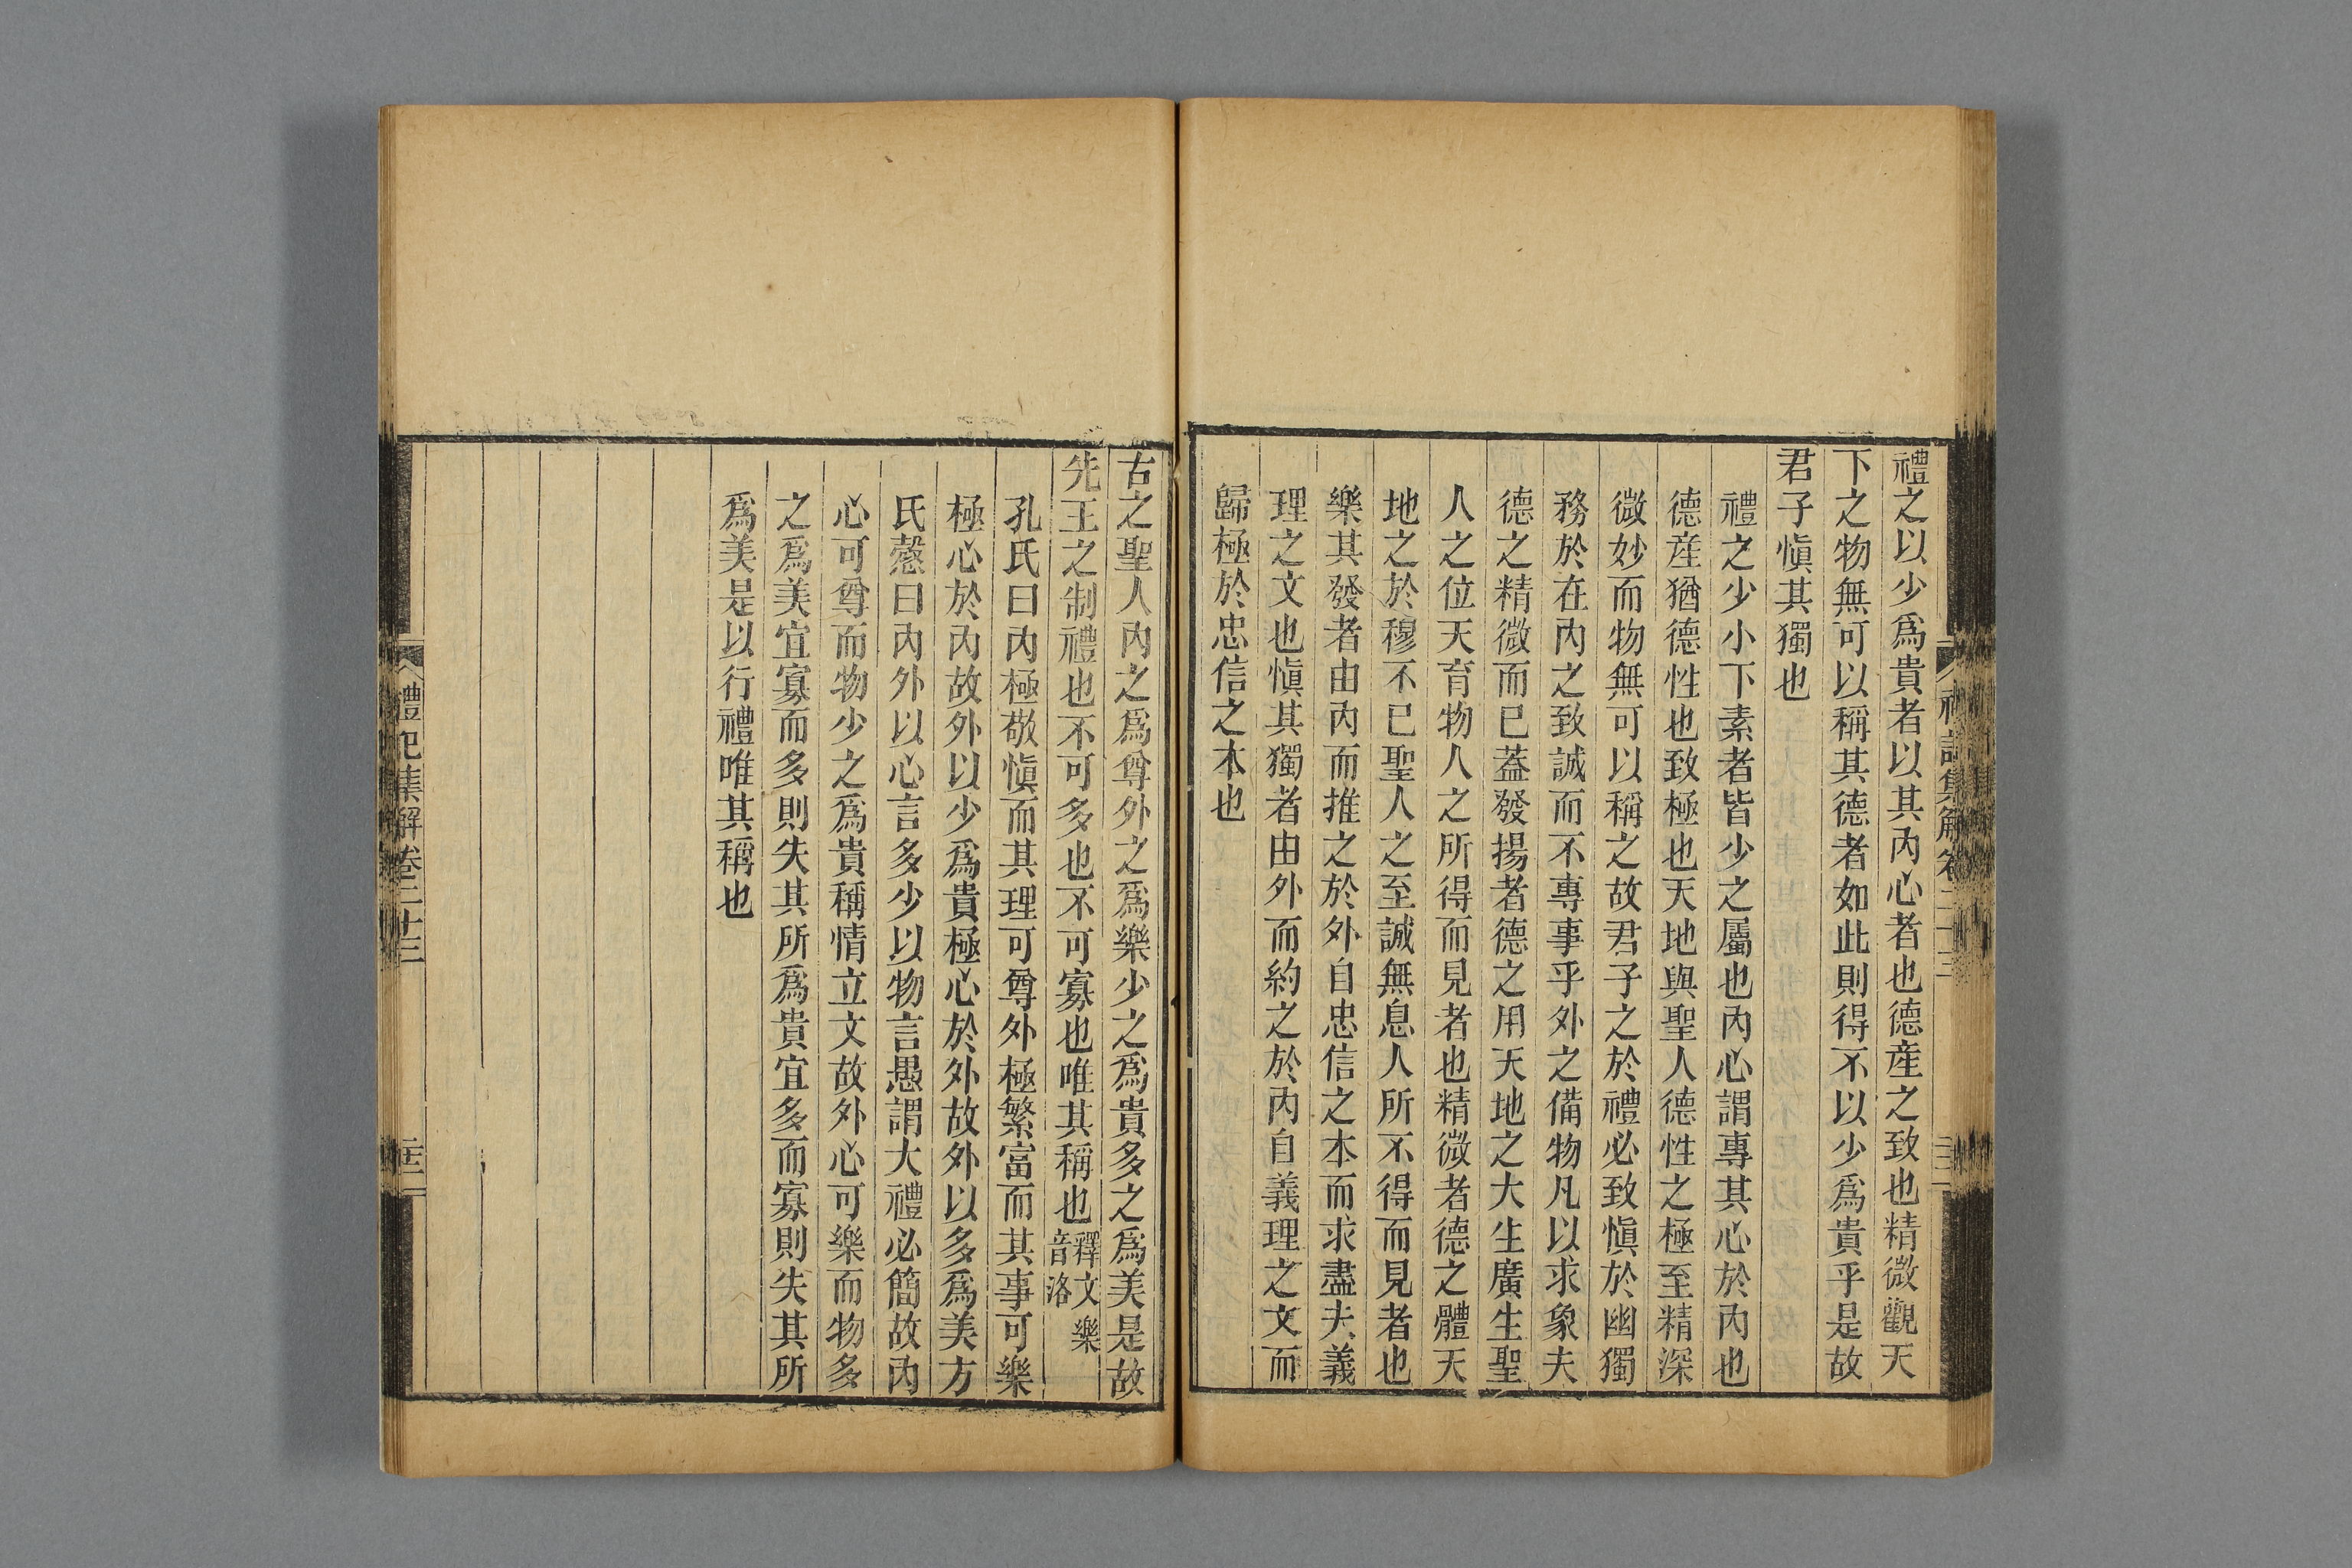 禮之以少爲貴者以其內心者也德産之致也精微觀天
下之物無可以稱其德者如此則得不以少爲貴乎是故
君子愼其獨也
禮之少小下素者皆少之屬也內心謂專其心於內也
德産猶德性也致極也天地與聖人德性之極至精深
微妙而物無可以稱之故君子之於禮必致愼於幽獨
務於在內之致誠而不專事乎外之備物凡以求象夫
德之精微而已蓋發揚者德之用天地之大生廣生聖
人之位天育物人之所得而見者也精微者德之體天
地之於穆不已聖人之至誠無息人所不得而見者也
樂其發者由內而推之於外自忠信之本而求盡夫義
理之文也愼其獨者由外而約之於內自義理之文而
歸極於忠信之本也
古之聖人內之爲尊外之爲樂少之爲貴多之爲美是故
先王之制禮也不可多也不可寡也唯其稱也釋文樂
音洛
孔氏曰內極敬愼而其理可尊外極繁富而其事可樂
極心於內故外以少爲貴極心於外故外以多爲美方
氏愨曰內外以心言多少以物言愚謂大禮必簡故內
心可尊而物少之爲貴稱情立文故外心可樂而物多
之爲美宜寡而多則失其所爲貴宜多而寡則失其所
爲美是以行禮唯其稱也
禮記集解卷二十三